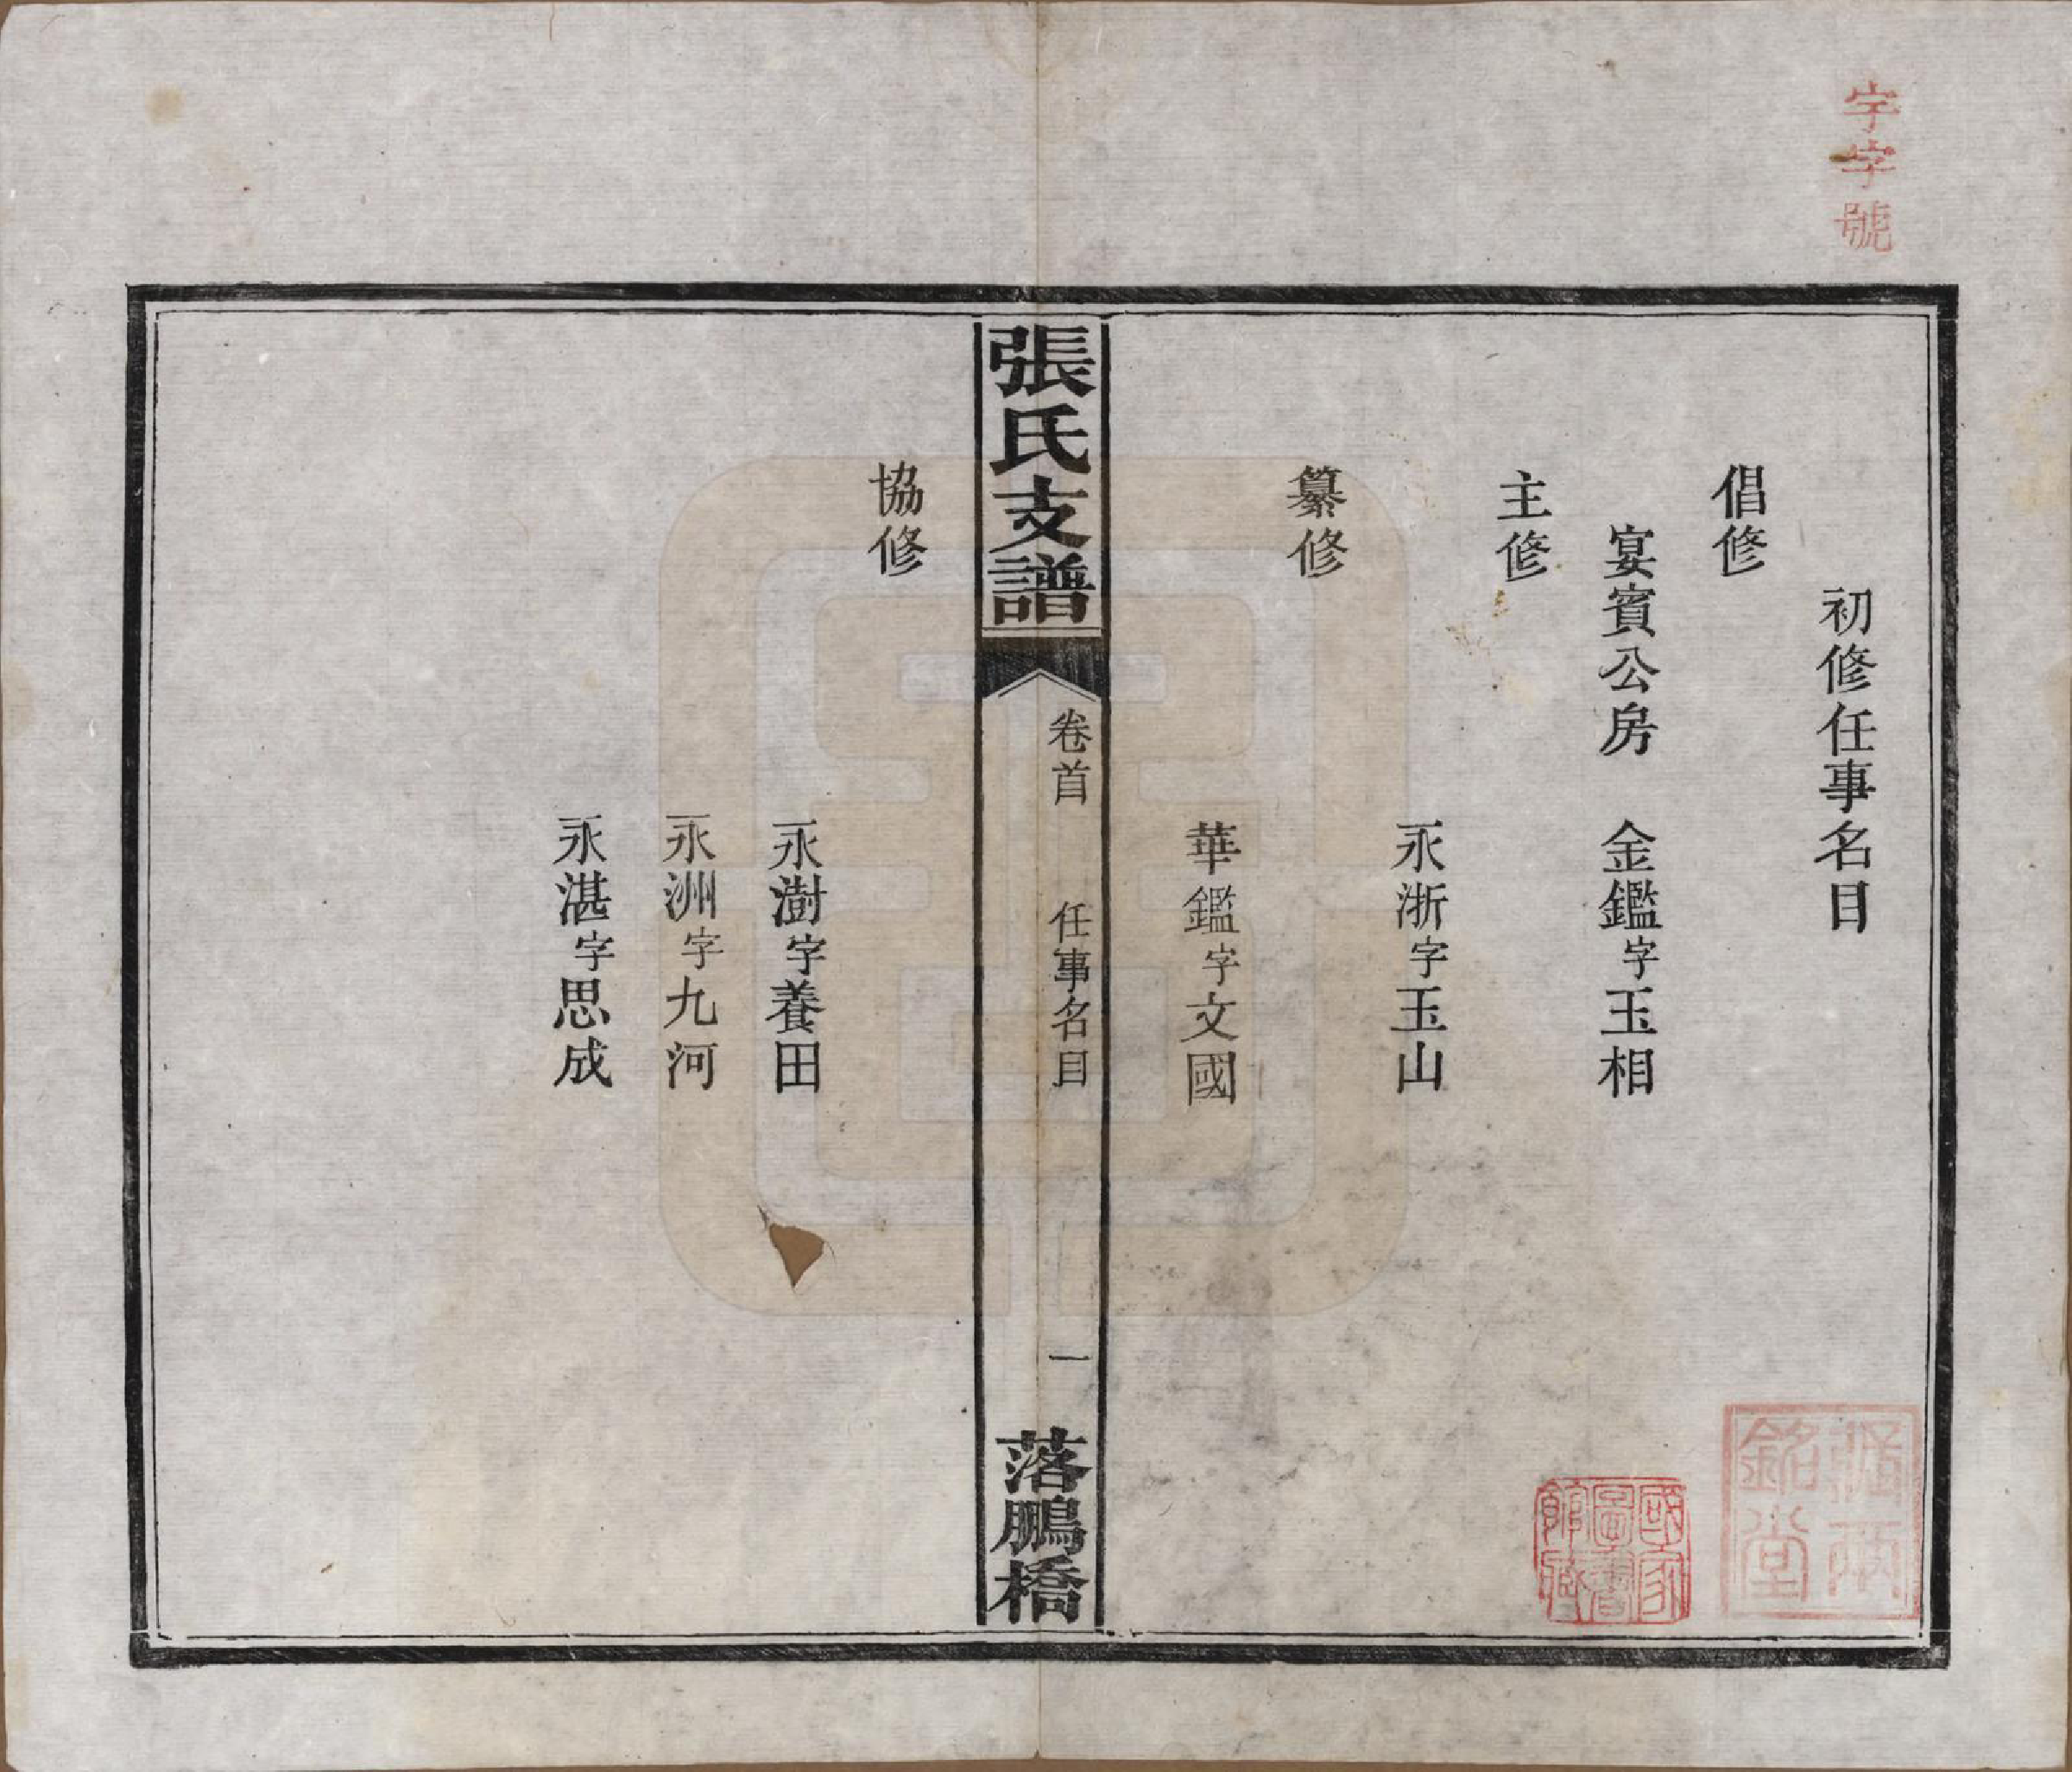 宇字號
初修任事名目
倡修
宴賓公房 金鑑字玉相
主修
永浙字玉山
纂修
華鑑字文國
張氏支譜 卷首 任事名目 一 落鵬橋
協修
永澍字養田
永洲字九河
永湛字思成
國家
圖書
館藏
兩
銘堂